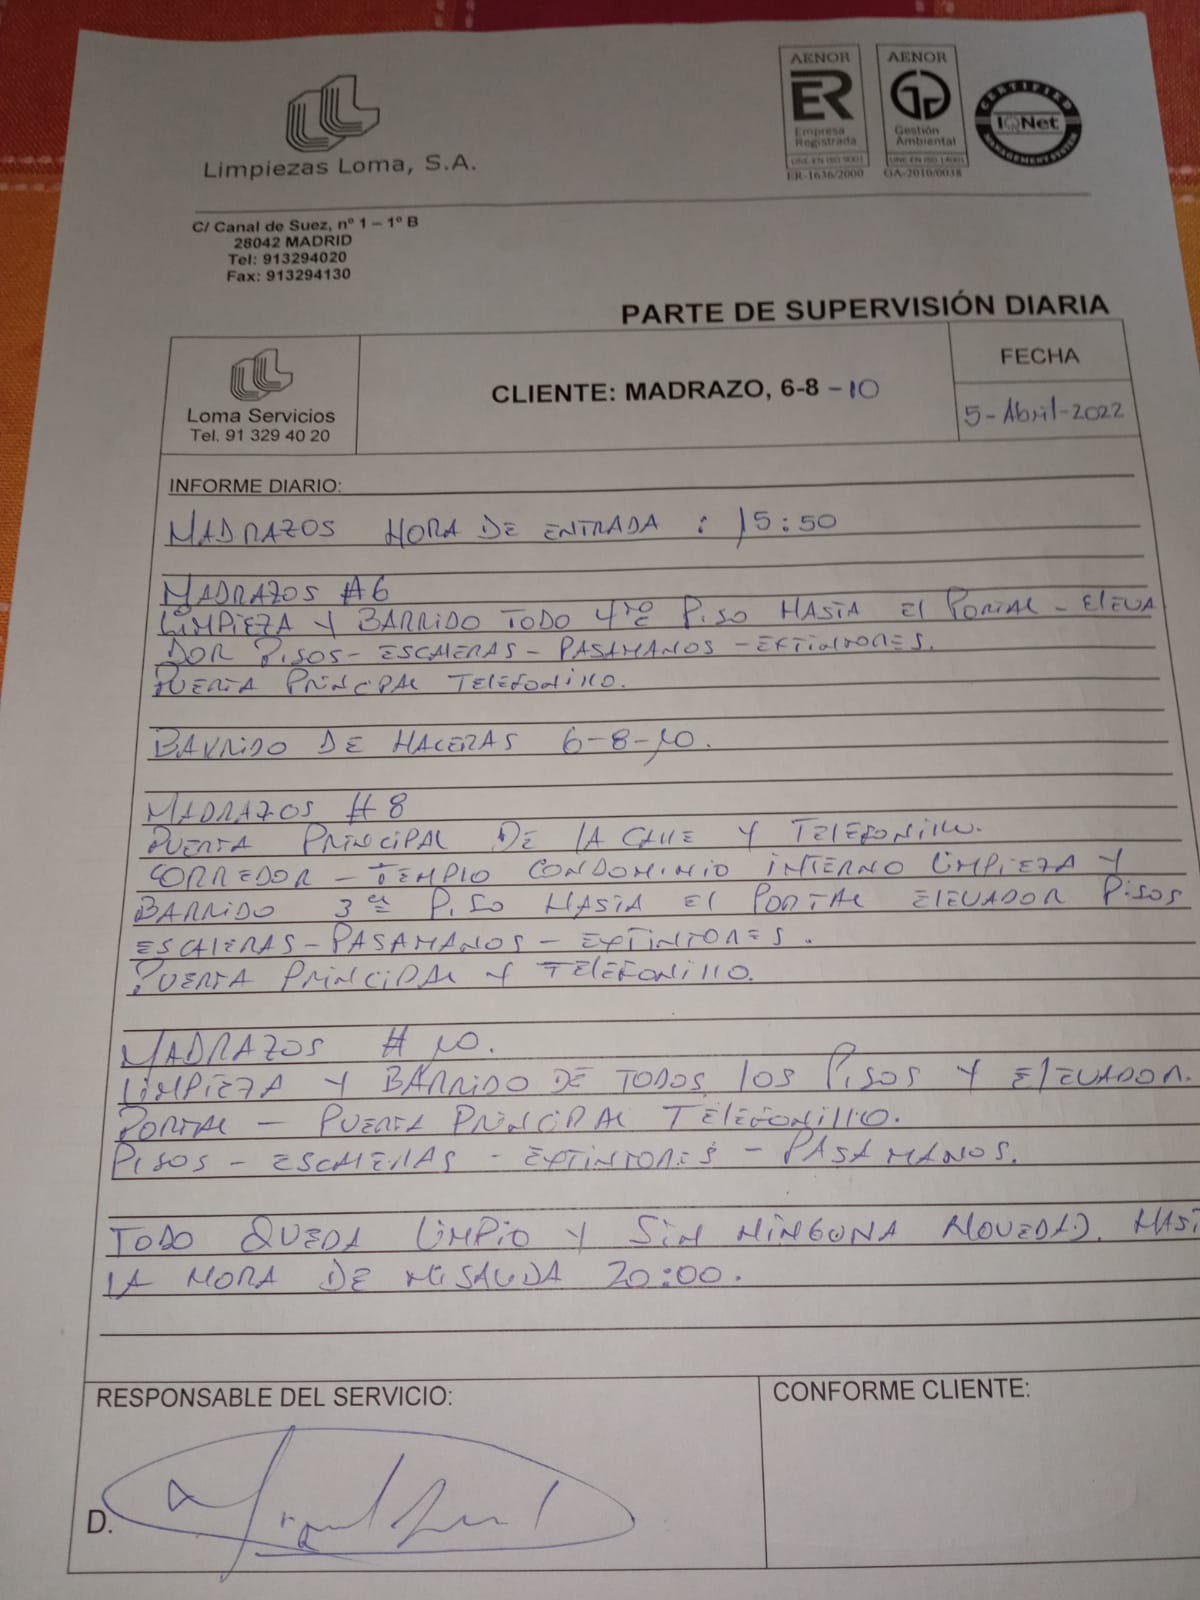 Limpiezas Loma, S.A.
AENOR
ER
Empresa
Registrada
UNE EN ISO 9001
ER-1636/2000
AENOR
Gestión
Ambiental
UNE EN ISO 14001
GA-2010/0038
CERTIFIED
IQNet
MANAGEMENT SYSTEM
C/ Canal de Suez, nº 1 – 1º B
28042 MADRID
Tel: 913294020
Fax: 913294130
PARTE DE SUPERVISIÓN DIARIA
Loma Servicios
Tel. 91 329 40 20
CLIENTE: MADRAZO, 6-8 -10
FECHA
5-Abril-2022
INFORME DIARIO:
MADRAZOS HORA DE ENTRADA : 15:50
MADRAZOS #6
LIMPIEZA Y BARRIDO TODO 4to PISO HASTA El PORTAL - ELEVA
DOR PISOS- ESCALERAS - PASAMANOS - EXTINTORES.
PUERTA PRINCIPAL TELEFONILLO.
BARRIDO DE HACERAS 6-8-10.
MADRAZOS #8
PUERTA PRINCIPAL DE LA CALLE Y TELEFONILLO.
CORREDOR - TEMPLO CONDOMINIO INTERNO LIMPIEZA Y
BARRIDO 3er PISO HASTA EL PORTAL ELEVADOR PISOS
ESCALERAS - PASAMANOS - EXTINTORES.
PUERTA PRINCIPAL Y TELEFONILLO.
MADRAZOS # 10.
LIMPIEZA Y BARRIDO DE TODOS LOS PISOS Y ELEVADOR.
PORTAL - PUERTA PRINCIPAL TELEFONILLO.
PISOS - ESCALERAS - EXTINTORES - PASAMANOS.
TODO QUEDA LIMPIO Y SIN NINGUNA NOVEDAD. HAST
LA HORA DE MI SALIDA 20:00.
RESPONSABLE DEL SERVICIO:
CONFORME CLIENTE:
D.